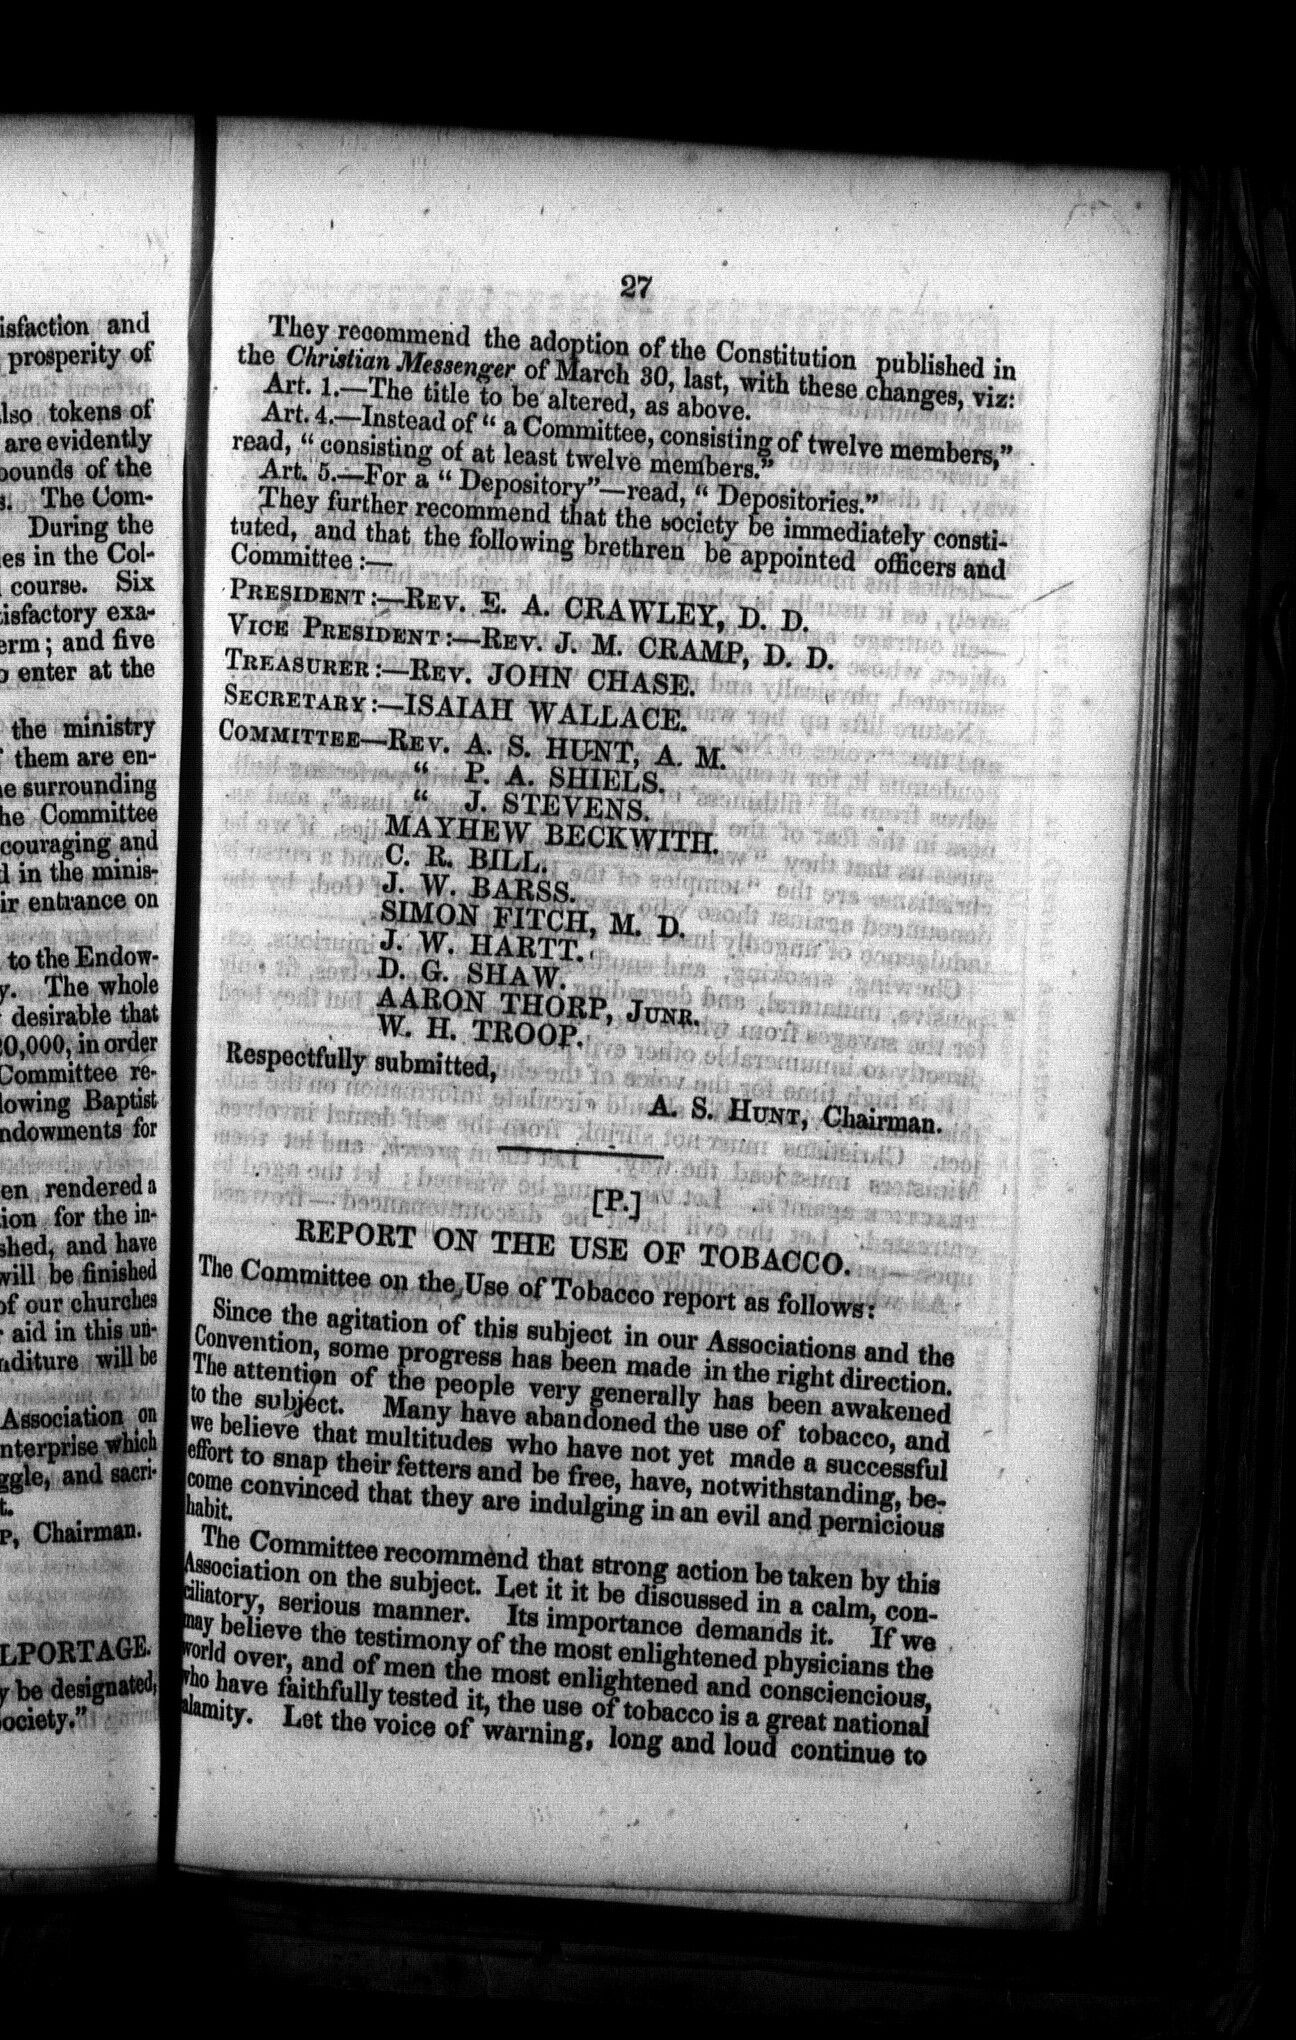 isfaction and
prosperity of
also tokens of
are evidently
bounds of the
s. The Com-
During the
ies in the Col-
course. Six
tisfactory exa-
erm; and five
o enter at the
the ministry
f them are en-
he surrounding
he Committee
couraging and
d in the minis-
ir entrance on
to the Endow-
y. The whole
desirable that
20,000, in order
Committee re-
lowing Baptist
ndowments for
en rendered a
tion for the in-
shed, and have
will be finished
of our churches
r aid in this un-
nditure will be
Association on
nterprise which
ggle, and sacri-
t.
P, Chairman.
LPORTAGE.
y be designated,
ociety."
27
They recommend the adoption of the Constitution published in
the Christian Messenger of March 30, last, with these changes, viz:
Art. 1.—The title to be altered, as above.
Art. 4.—Instead of " a Committee, consisting of twelve members,"
read, " consisting of at least twelve members."
Art. 5.—For a " Depository"—read, " Depositories."
They further recommend that the society be immediately consti-
tuted, and that the following brethren be appointed officers and
Committee:—
PRESIDENT:—REV. E. A. CRAWLEY, D. D.
VICE PRESIDENT:—REV. J. M. CRAMP, D. D.
TREASURER:—REV. JOHN CHASE.
SECRETARY:—ISAIAH WALLACE.
COMMITTEE—REV. A. S. HUNT, A. M.
" P. A. SHIELS.
" J. STEVENS.
MAYHEW BECKWITH.
C. R. BILL.
J. W. BARSS.
SIMON FITCH, M. D.
J. W. HARTT.
D. G. SHAW.
AARON THORP, JUNR.
W. H. TROOP.
Respectfully submitted,
A. S. HUNT, Chairman.
[P.]
REPORT ON THE USE OF TOBACCO.
The Committee on the Use of Tobacco report as follows:
Since the agitation of this subject in our Associations and the
Convention, some progress has been made in the right direction.
The attention of the people very generally has been awakened
to the subject. Many have abandoned the use of tobacco, and
we believe that multitudes who have not yet made a successful
effort to snap their fetters and be free, have, notwithstanding, be-
come convinced that they are indulging in an evil and pernicious
habit.
The Committee recommend that strong action be taken by this
Association on the subject. Let it it be discussed in a calm, con-
ciliatory, serious manner. Its importance demands it. If we
may believe the testimony of the most enlightened physicians the
world over, and of men the most enlightened and consciencious,
who have faithfully tested it, the use of tobacco is a great national
alamity. Let the voice of warning, long and loud continue to